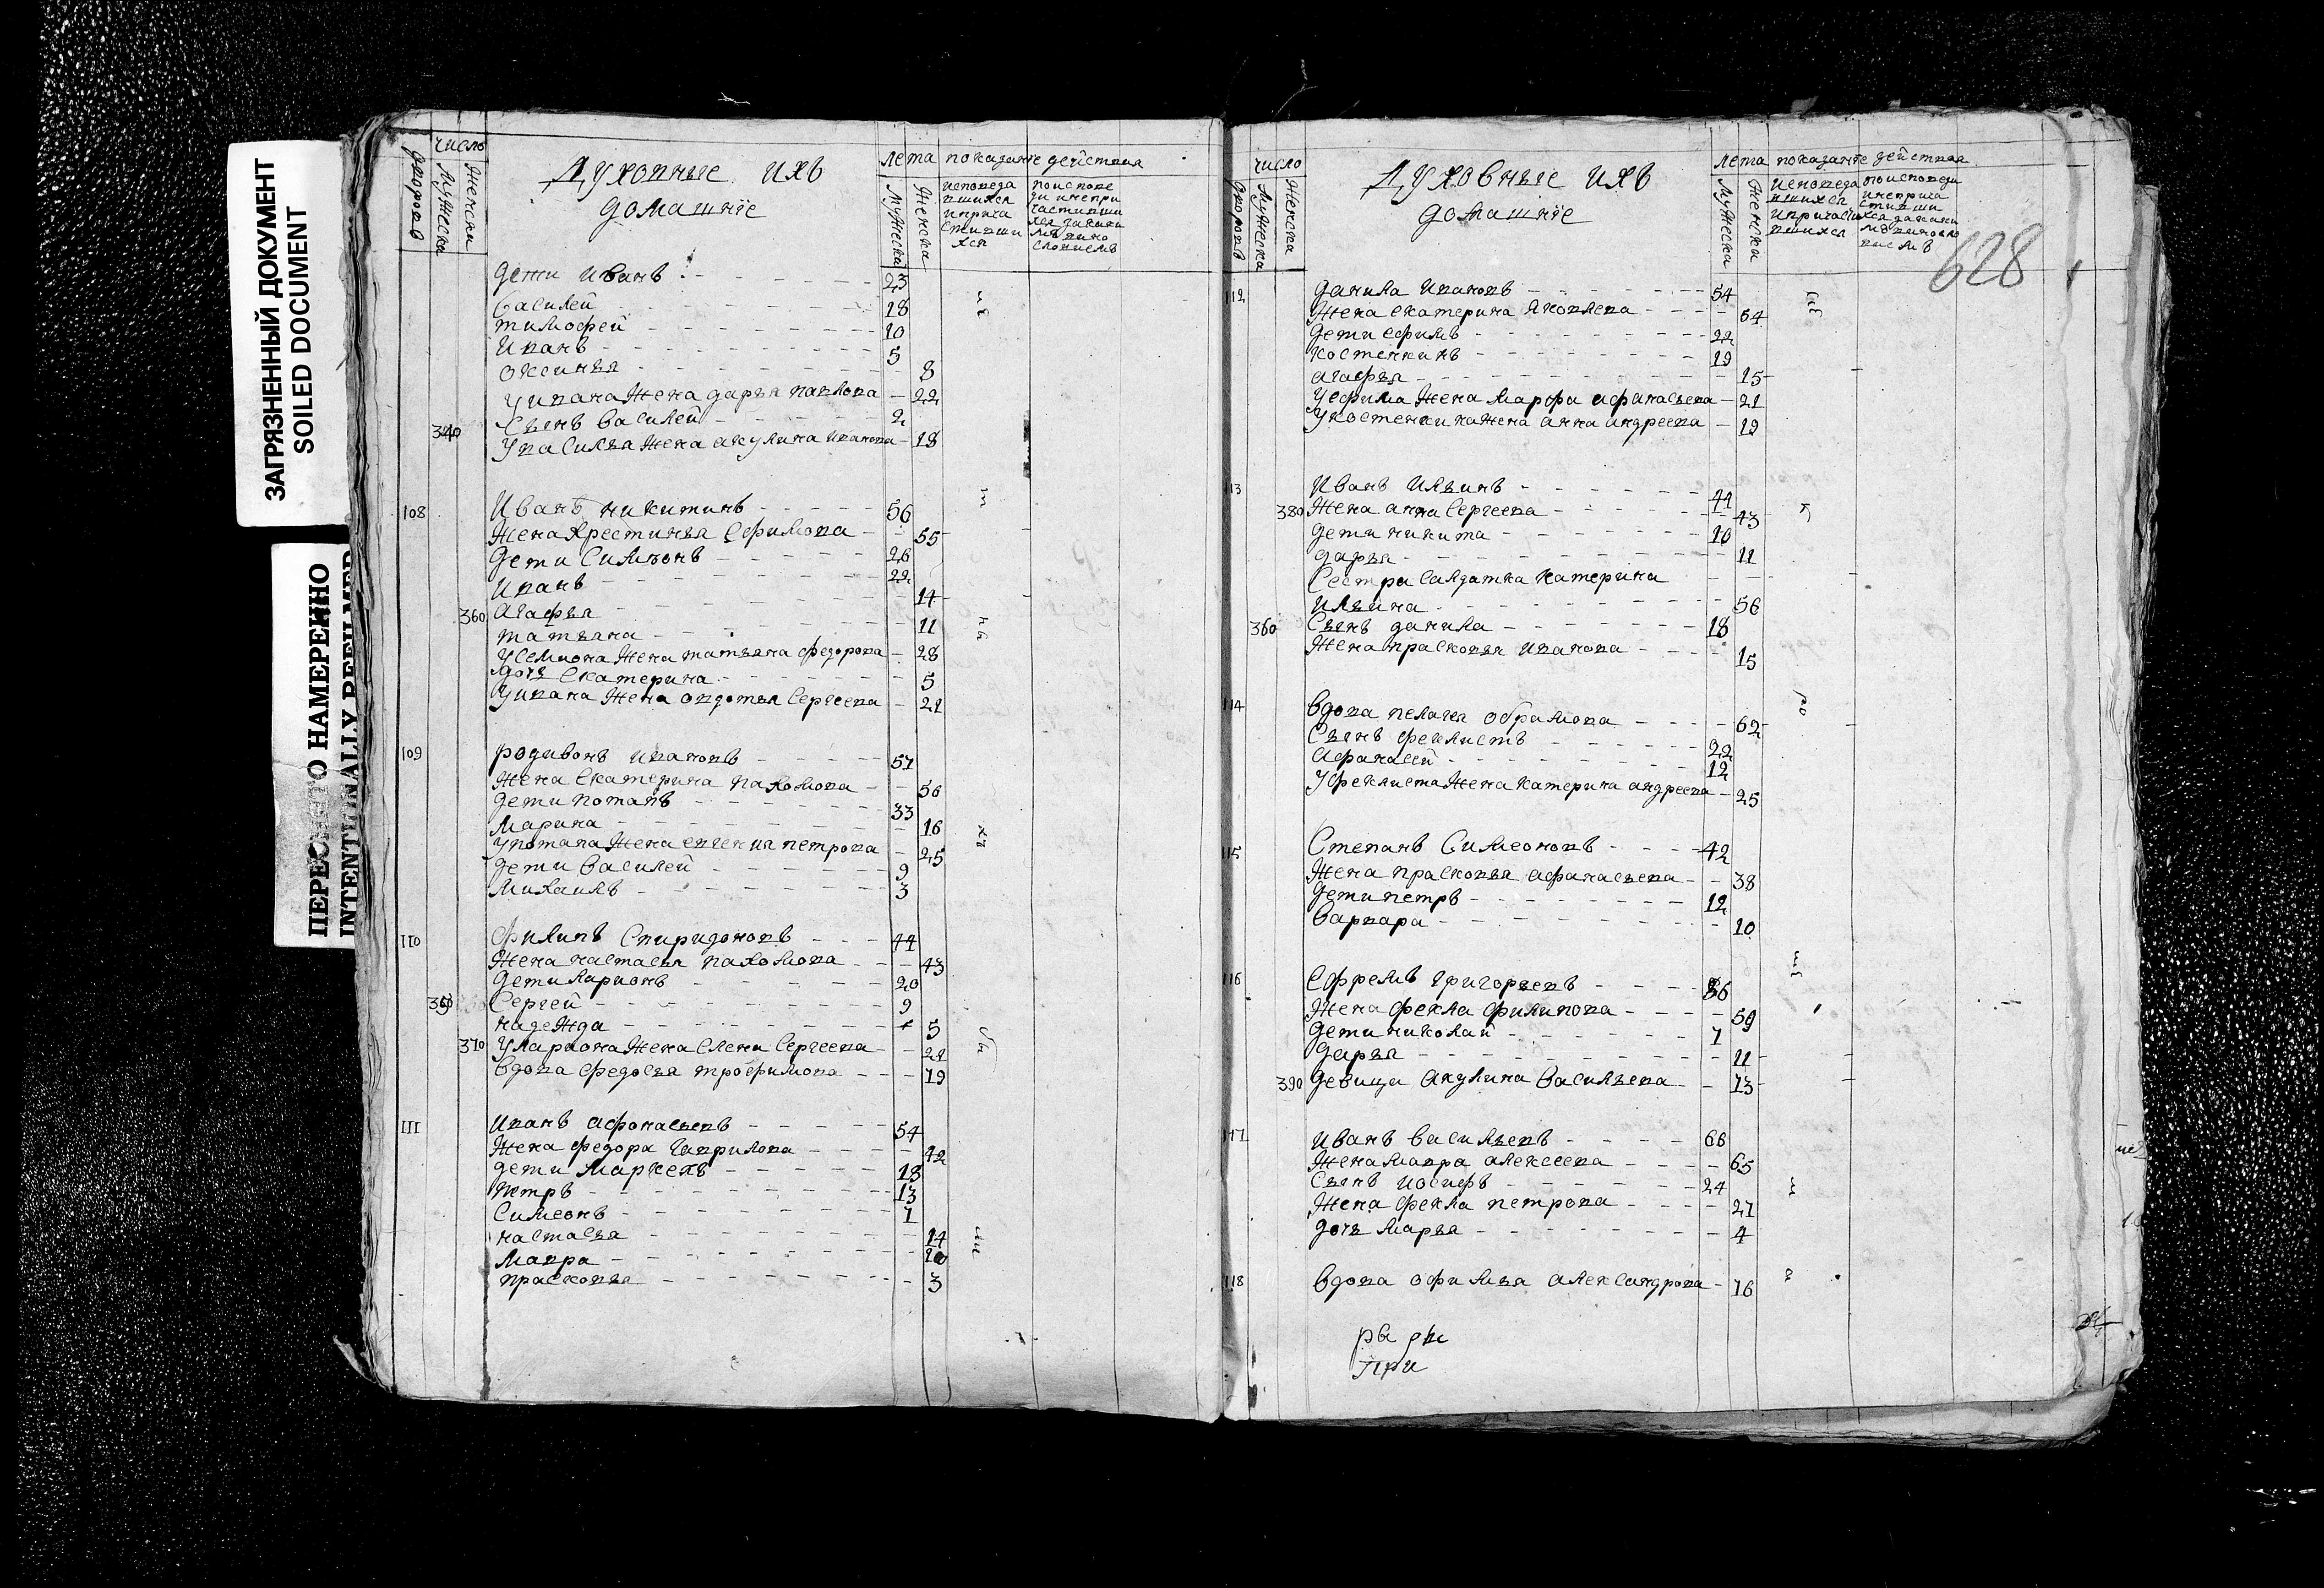 ЗАГРЯЗНЕННЫЙ ДОКУМЕНТ
SOILED DOCUMENT
ПЕРЕСНЯТО НАМЕРЕННО
INTENTIONALLY REFILMED
число
дворовъ
мужеска
женска
Духовные ихъ
домашніе
лета показание действия
мужеска
женска
исповеда
вшихся
и прича
стивши
хся
по испове
ди и непри
частивши
хся
дети Иванъ 23
Василей 18
тимофей 10
Иванъ 5
оксинья 8
у ивана жена дарья павлова 22
Сынъ василей 2
340 у василья жена акулина иванова 18
108 Иванъ никитинъ 56
жена хрестинья ефимова 55
дети Симионъ 26
Иванъ 22
14
360 агафья
татьяна 11
у семиона жена татьяна федорова 28
дочь екатерина 5
у ивана жена овдотья Сергеева 21
109 родивонъ ивановъ 57
жена екатерина пахомова 56
дети потапъ 33
Марина 16
у потапа жена евгения петрова 25
дети василей 9
михаилъ 3
110 филипъ Спиридоновъ 44
жена настасья пахомова 43
дети ларионъ 20
350 Сергей 9
надежда 5
370 у лариона жена елена Сергеева 21
вдова федосья трофимова 79
111 иванъ афонасьевъ 54
жена федора гаврилова 42
дети Маркелъ 18
петръ 13
Симеонъ 1
настасья 14
Мавра 10
прасковья 3
628
число
дворовъ
мужеска
женска
Духовные ихъ
домашніе
лета показание действия
мужеска
женска
исповеда
вшихся
и причасти
вшихся
по исповеди
и неприча
стивши
хся
112 данила ивановъ 54
жена екатерина яковлева 54
дети ефимъ 22
костенкинъ 19
агафья 15
у ефима жена марфа афанасьева 21
у костенкина жена анна андреева 19
113 Иванъ Ильинъ 44
380 жена анна Сергеева 43
дети никита 10
дарья 11
Сестра салдатка катерина
ильина 56
360 Сынъ данила 18
жена прасковья иванова 15
114 вдова пелагея обрамова 62
Сынъ феклистъ 22
афанасей 12
у феклиста жена катерина андреева 25
115 Степанъ Симеоновъ 42
жена прасковья афанасьева 38
дети петръ 12
варвара 10
116 Ефремъ григорьевъ 56
жена фекла филипова 59
дети николай 7
дарья 11
390 девица акулина васильева 73
117 иванъ васильевъ 66
жена мавра алексеева 65
Сынъ иосифъ 24
жена фекла петрова 27
дочь марья 4
118 вдова офимья александрова 76
при